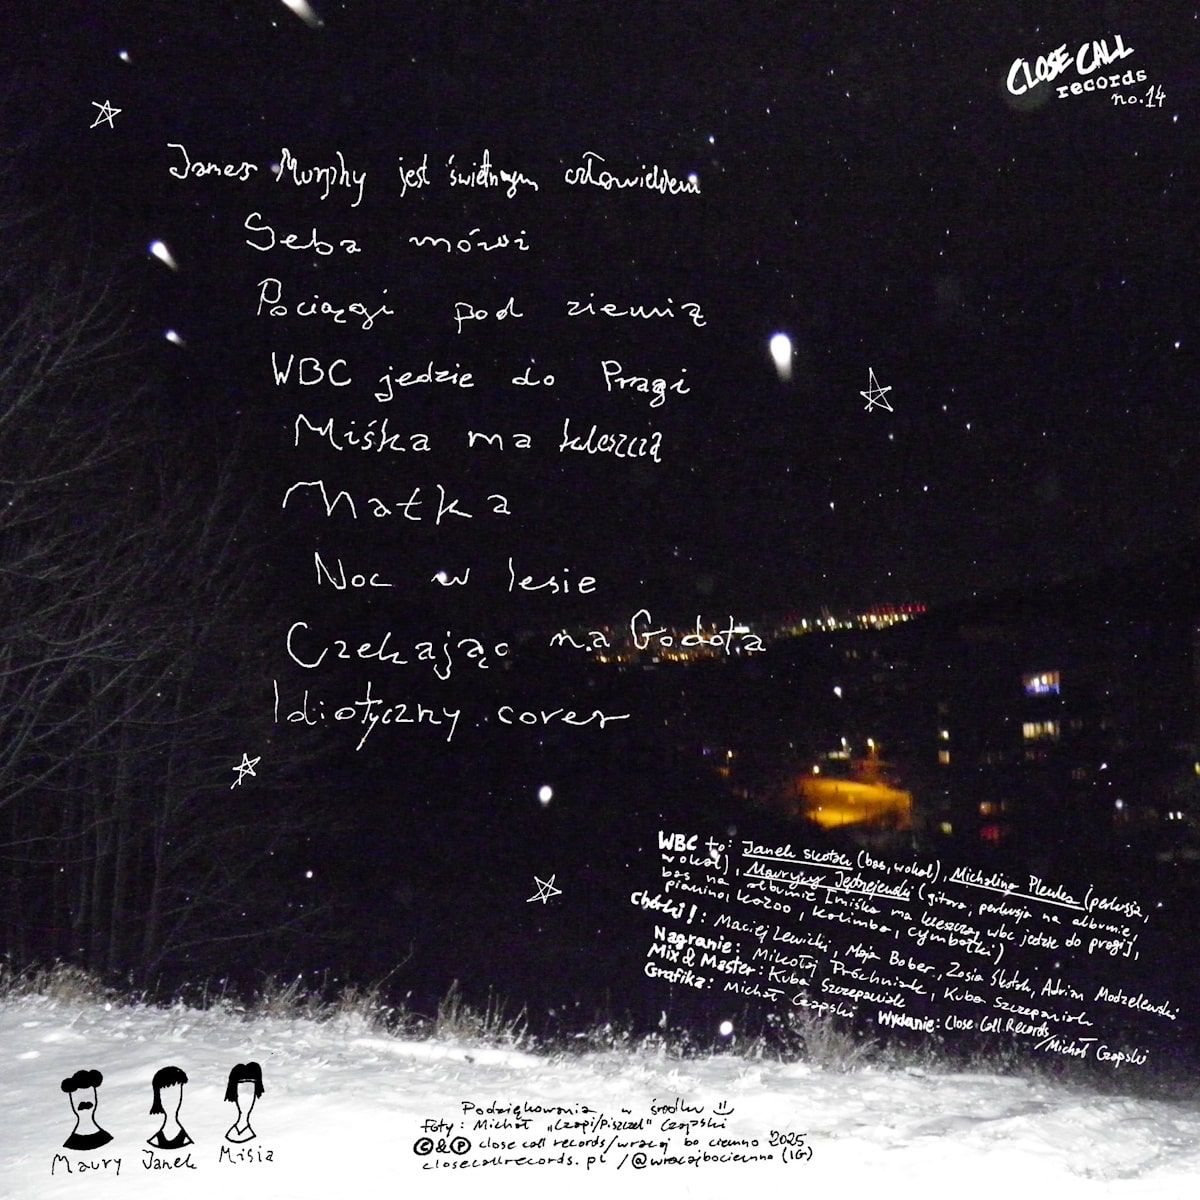 CLOSE CALL
records
no.14
James Murphy jest świetnym człowiekiem
Seba mówi
Pociągi pod ziemią
WBC jedzie do Pragi
Miśka ma kleszcza
Matka
Noc w lesie
Czekając na Godota
Idiotyczny cover
WBC to: Janek Skotak (bas, wokal), Michalina Plewka (perkusja,
wokal), Maurycy Jędrzejewski (gitara, perkusja na albumie,
bas na albumie [miśka ma kleszcza, wbc jedzie do pragi],
pianino, kazoo, kalimba, cymbałki)
Chórki!: Maciej Lewicki, Maja Bober, Zosia Skotak, Adrian Modzelewski
Nagranie: Mikołaj Próchniak, Kuba Szczepaniak
Mix & Master: Kuba Szczepaniak
Grafika: Michał Czapski
Wydanie: Close Call Records
/Michał Czapski
Maury Janek Misia
Podziękowania w środku
Foty: Michał „Czapi/Piszczel" Czapski
© & ℗ close call records/wracaj bo ciemno 2025
closecallrecords.pl /@wracajbociemno (IG)